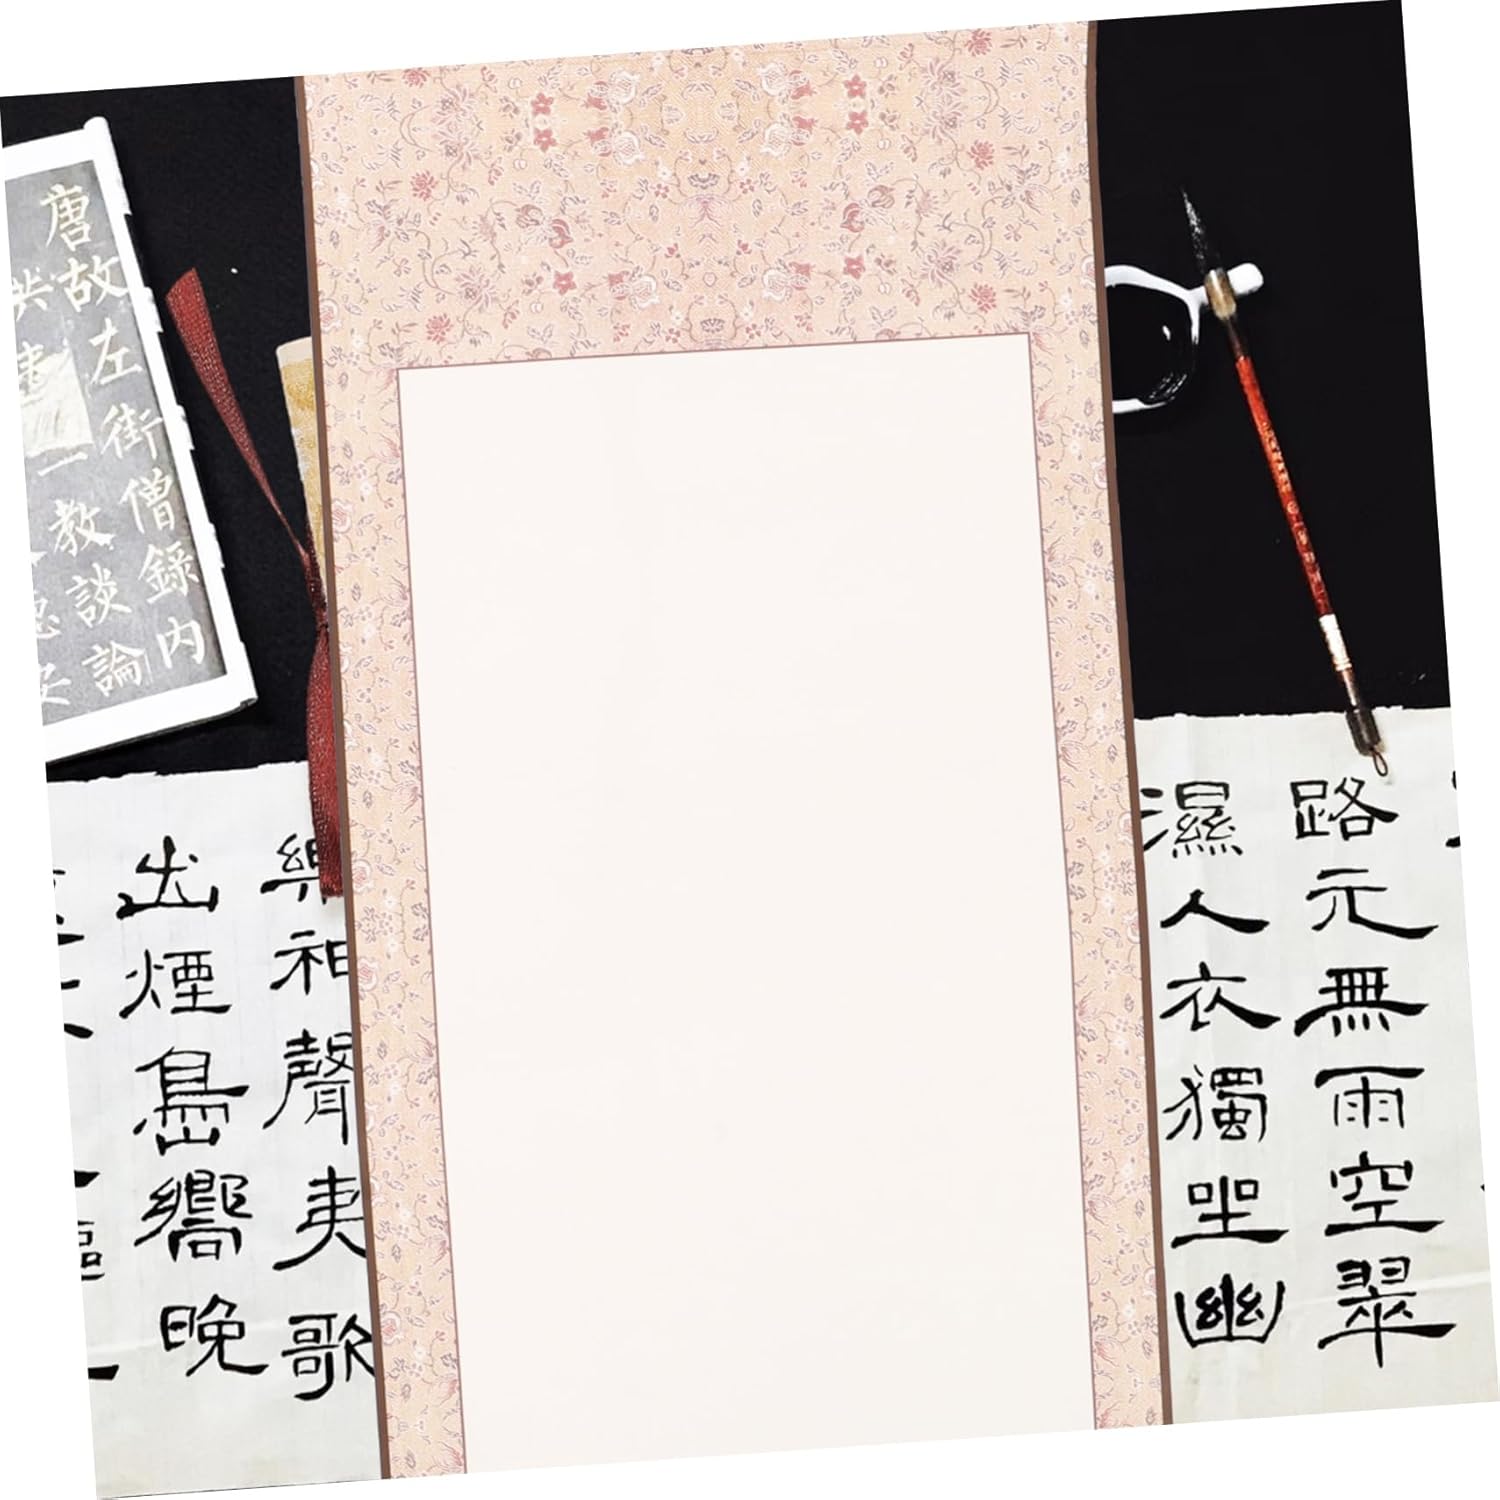 唐故左街僧錄內
教談論
安
路元無雨空翠
濕人衣獨坐幽
和聲夷歌
出煙島嚮晚